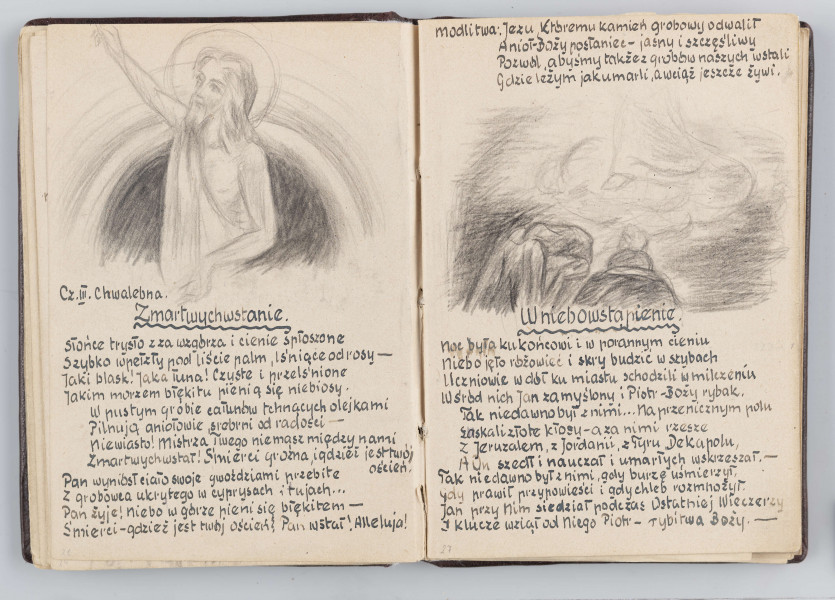 Cz. III. Chwalebna.
Zmartwychwstanie.
Słońce trysło zza wzgórza i cienie spłoszone
Szybko wpełzły pod liście palm, lśniące od rosy —
Jaki blask! Jaka łuna! Czyste i przelśnione
Jakim morzem błękitu pienią się niebiosy.
W pustym grobie całunów tchnących olejkami
Pilnują aniołowie srebrni od radości —
Niewiasto! Mistrza Twego niemasz między nami
Zmartwychwstał! Śmierci groźna, gdzież jest twój
oścień.
Pan wyniósł ciało swoje gwoździami przebite
Z grobowca ukrytego w cyprysach i tujach...
Pan żyje! Niebo w górze pieni się błękitem —
Śmierci – gdzież jest twój oścień? Pan wstał! Alleluja!
modlitwa: Jezu, Któremu kamień grobowy odwalił
Anioł-Boży posłaniec – jasny i szczęśliwy
Pozwól, abyśmy także z grobów naszych wstali
Gdzie leżym jak umarli, a wciąż jeszcze żywi.
Wniebowstąpienie.
Noc była ku końcowi i w porannym cieniu
Niebo jęło różowieć i skry budzić w szybach
Uczniowie w dół ku miastu schodzili w milczeniu
Wśród nich Jan zamyślony i Piotr-Boży rybak.
Tak niedawno był z nimi... Na przenicznym polu
Łaskali złote kłosy – a za nimi rzesze
Z Jeruzalem, z Jordanii, z Tyru Dekapolu,
A On szedł i nauczał i umarłych wskrzeszał. —
Tak niedawno był z nimi, gdy burzę uśmierzył,
Gdy prawił przypowieści i gdy chleb rozmnożył.
Jan przy Nim siedział podczas Ostatniej Wieczerzy
I klucze wziął od Niego Piotr – rybitwa Boży. —
27